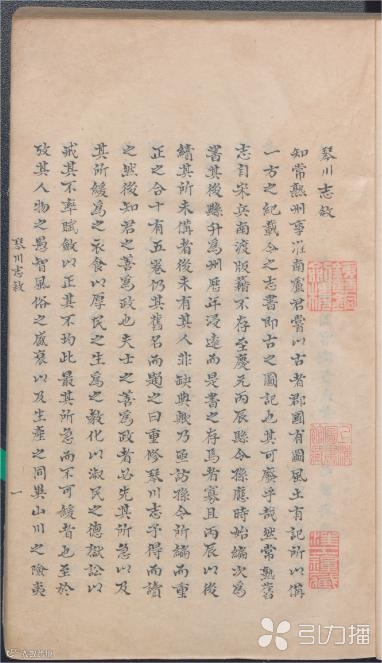 琴川志敘
知常熟州事淮南盧君嘗以古者郡國有圖風土有記所以備
一方之紀載今之志書即古之圖記也其可廢乎哉然常熟舊
志自宋兵南渡版籍不存至慶元丙辰縣令孫應時始編次為
書其後縣升為州曆年浸遠而是書之存焉者寡且丙辰以後
續其所未備者後未有其人非缺典歟乃亟訪孫令所編而重
正之合十有五卷仍其舊名而題之曰重修琴川志予得而讀
之然後知君之善為政也夫士之善為政者必先其所急以及
其所緩為之衣食以厚民之生為之教化以淑民之德獄訟以
戒其不率賦斂以正其不均此最其所急而不可緩者也至於
攷其人物之愚智風俗之盛衰以及生產之同異山川之險夷
琴川志敘
一
引力播